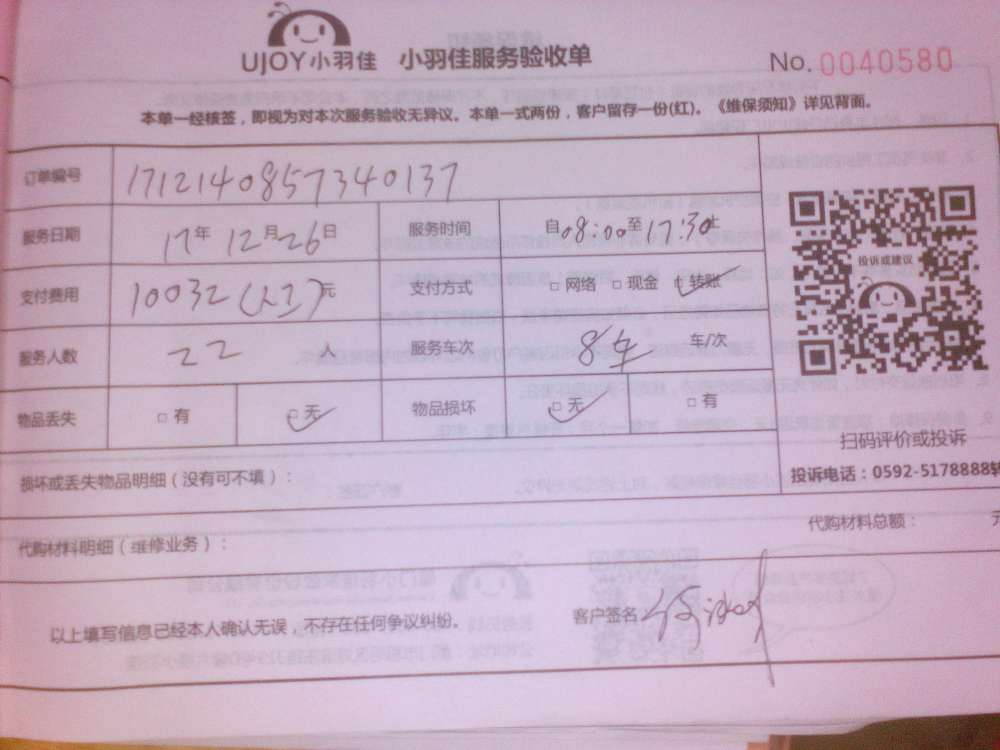 UJOY小羽佳 小羽佳服务验收单 No. 0040580
本单一经核签，即视为对本次服务验收无异议。本单一式两份，客户留存一份(红)。《维保须知》详见背面。
订单编号 1712140857340137
服务日期 17年12月26日 服务时间 自08:00至17:30止
支付费用 10032(人工)元 支付方式 □网络 □现金 □转账
服务人数 22 人 服务车次 8车 车/次
物品丢失 □有 □无 物品损坏 □无 □有
投诉或建议
扫码评价或投诉
投诉电话：0592-5178888转
损坏或丢失物品明细（没有可不填）：
代购材料明细（维修业务）： 代购材料总额： 元
以上填写信息已经本人确认无误，不存在任何争议纠纷。 客户签名：